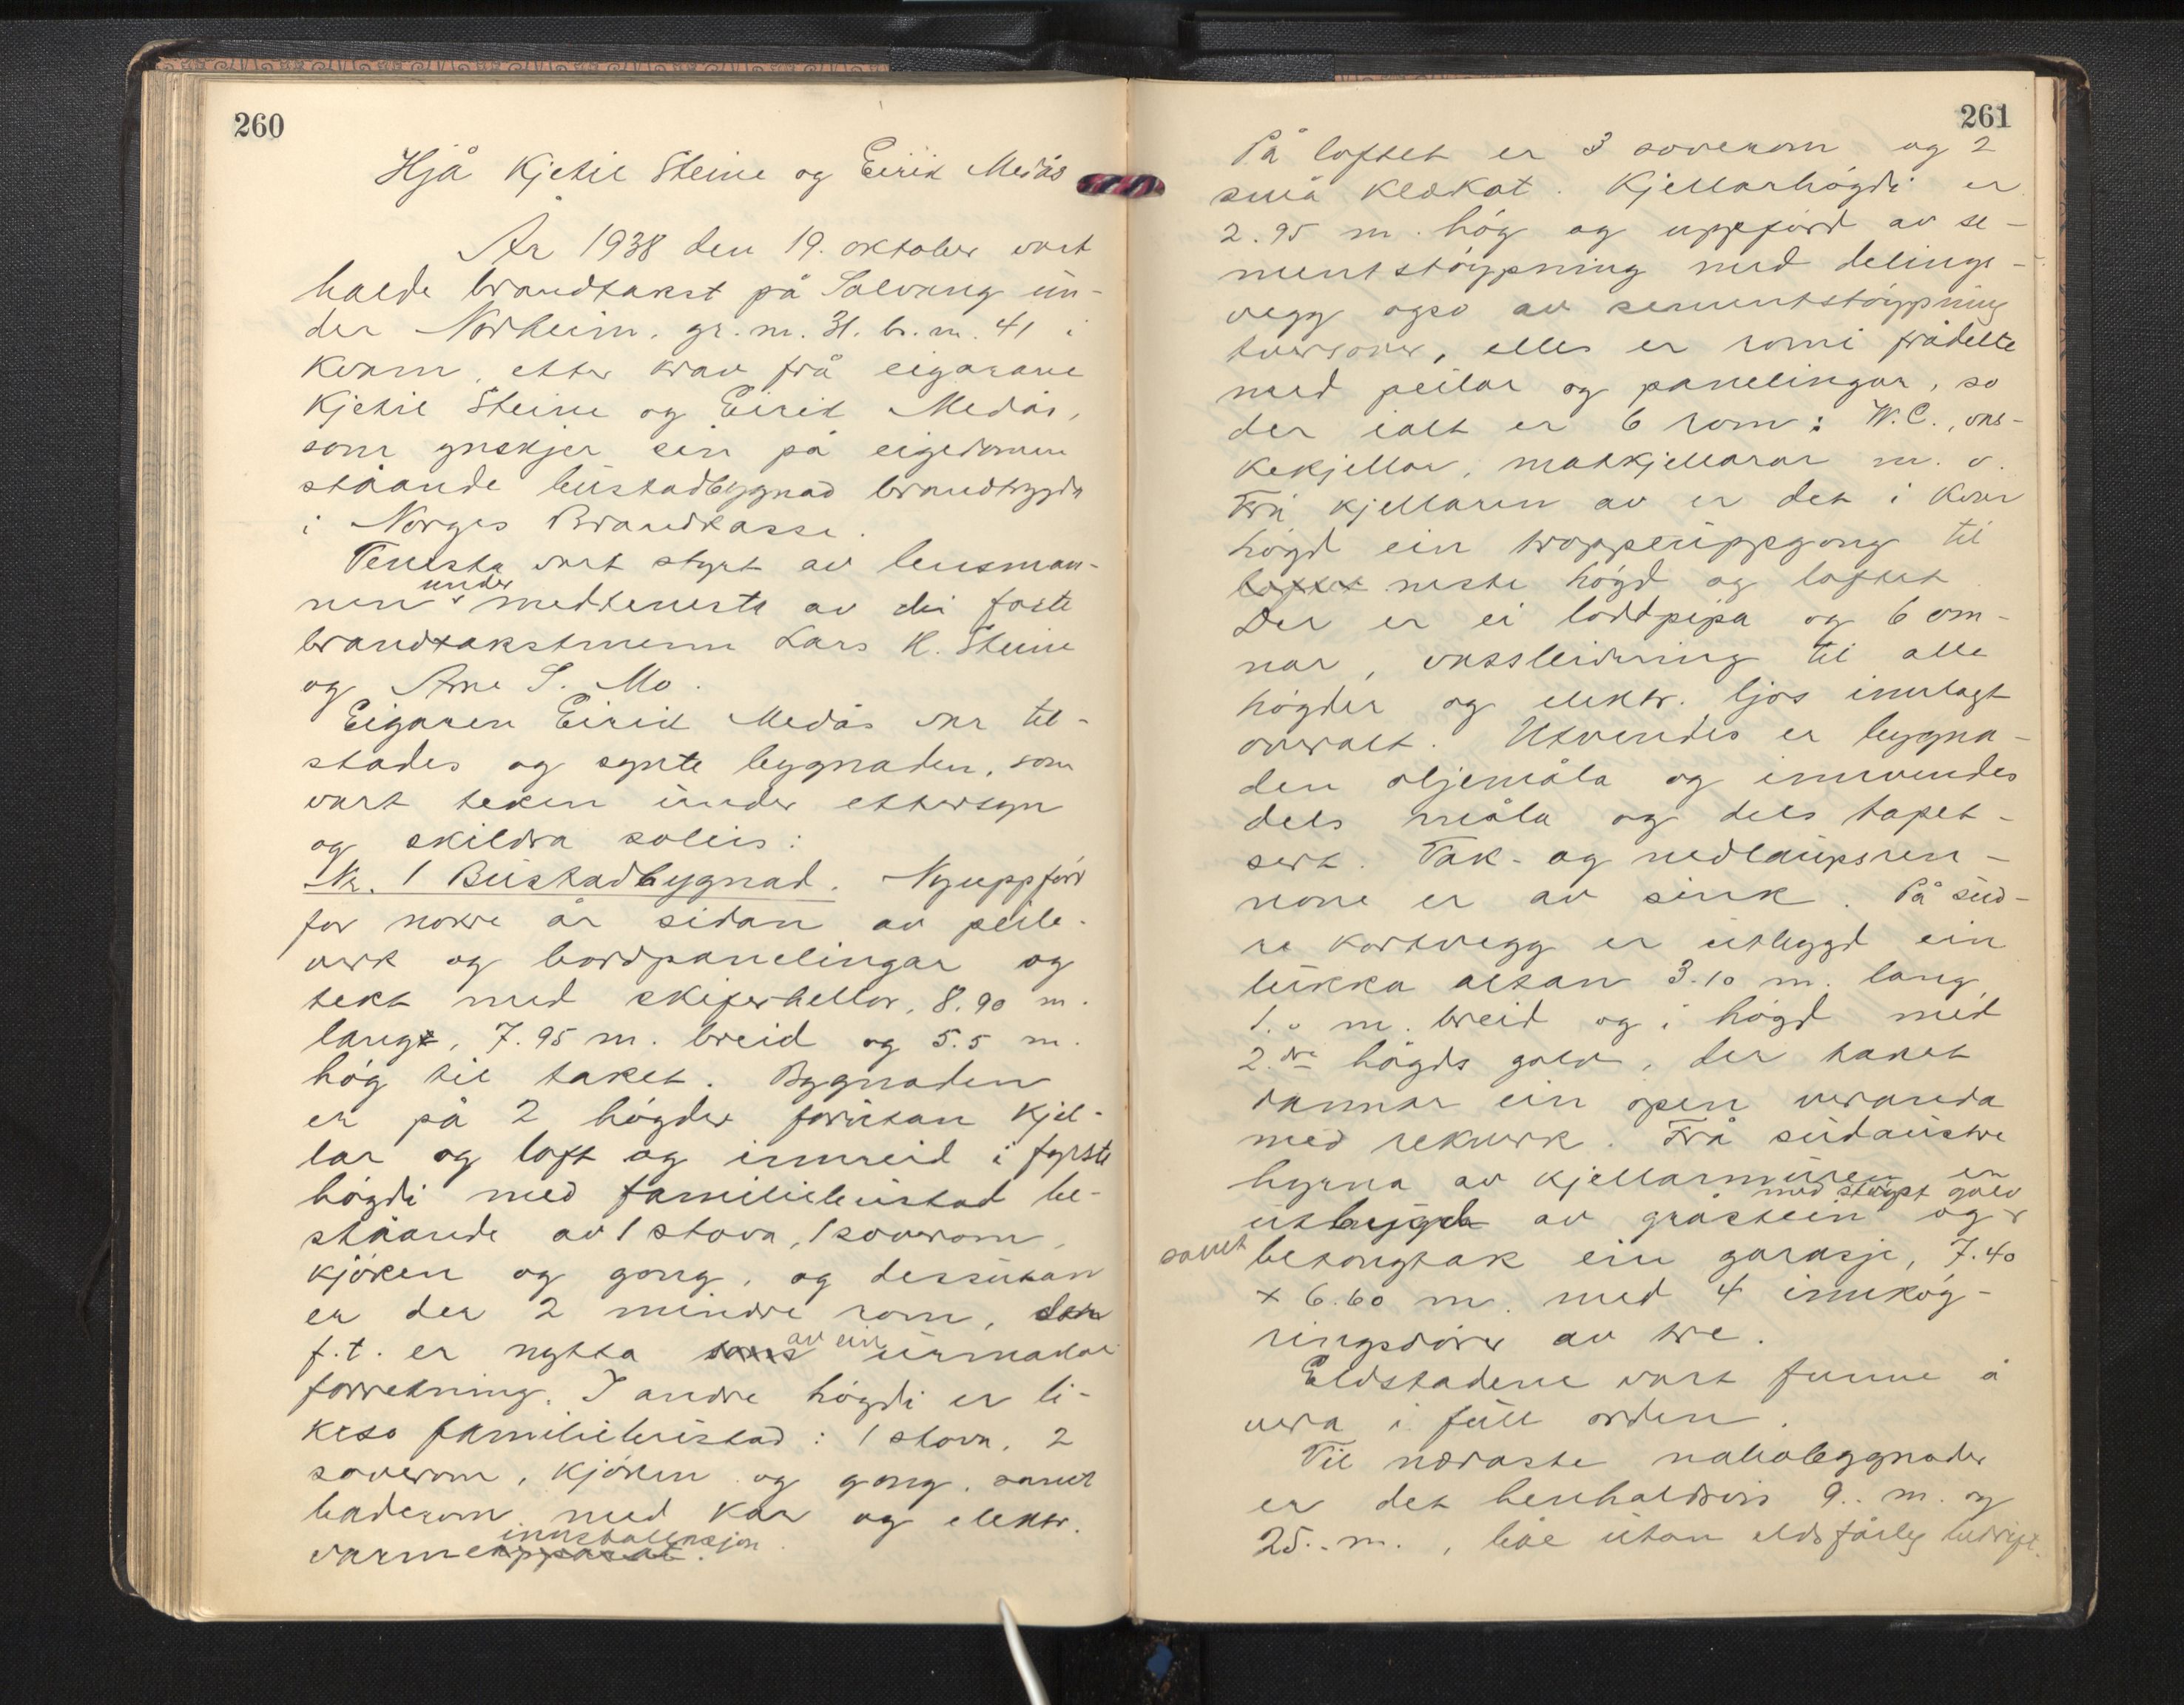 260
Hjå Kjetil Steine og Eirik Medås
År 1938 den 19. oktober vart
halde brandtakst på Solvang un-
der Norheim, gr. nr. 31. br. nr. 41 i
Kvam, etter krav frå eigarane
Kjetil Steine og Eirik Medås,
som ynskjer sin på eigedomen
ståande bustadbygnad brandtrygda
i Norges Brandkasse.
Tenesta vart styrt av lensman-
nen under medteneste av dei faste
brandtakstmenn Lars K. Steine
og Arne S. Mo.
Eigaren Eirik Medås var til-
stades og synte bygnaden, som
vart teken under ettersyn
og skildra soleis:
Nr. 1 Bustadbygnad. Nyuppförd
for nokre år sidan av peile-
verk og bordpanelingar og
tekt med skiferhellor, 8.90 m.
lang, 7.95 m. breid og 5.5 m.
hög til taket. Bygnaden
er på 2 högder forutan kjel-
lar og loft og innreid i fyrste
högdi med familiebustad be-
ståande av 1 stova, 1 soverom,
kjöken og gong, og dessutan
er der 2 mindre rom, som
f.t. er nytta av ein urmakar
forretning. I andre högdi er li-
keso familiebustad: 1 stova, 2
soverom, kjöken og gong, samt
baderom med kar og elektr.
varmeinnstallasjon.
261
På loftet er 3 soverom og 2
små klækot. Kjellarhögdi er
2.95 m. hög og uppförd av se-
mentstöypning med delings-
vegg ogso av sementstöypning
tversover, elles er romi frådelte
med peilar og panelingar, so
der ialt er 6 rom: W.C., vas-
kekjellar, matkjellarar m. v.
Frå kjellaren av er det i kvar
högd ein trappeuppgong til
loftet neste högd og loftet
Der er ei loddpipa og 6 om-
nar, vassleidning til alle
högder og elektr. ljos innlagt
overalt. Utvendes er bygna-
den oljemåla og innvendes
dels måla og dels tapet-
sert. Tak- og nedlaupsren-
none er av sink. På sud-
re kortvegg er utbygd ein
lukka altan 3.10 m. lang,
1.0 m. breid og i högd med
2.dre högds golv, der taket
dannar ein open veranda
med rekverk. Frå sudaustre
hyrna av kjellarmuren er
utbygd av gråstein med stöypt golv og
samt betongtak ein garasje, 7.40
x 6.60 m. med 4 innköy-
ringsdörer av tre.
Eldstadene vart funne å
vera i full orden.
Til næraste nabobygnader
er det henhaldsvis 9.. m. og
25.. m., båe utan eldsfårleg bedrift.